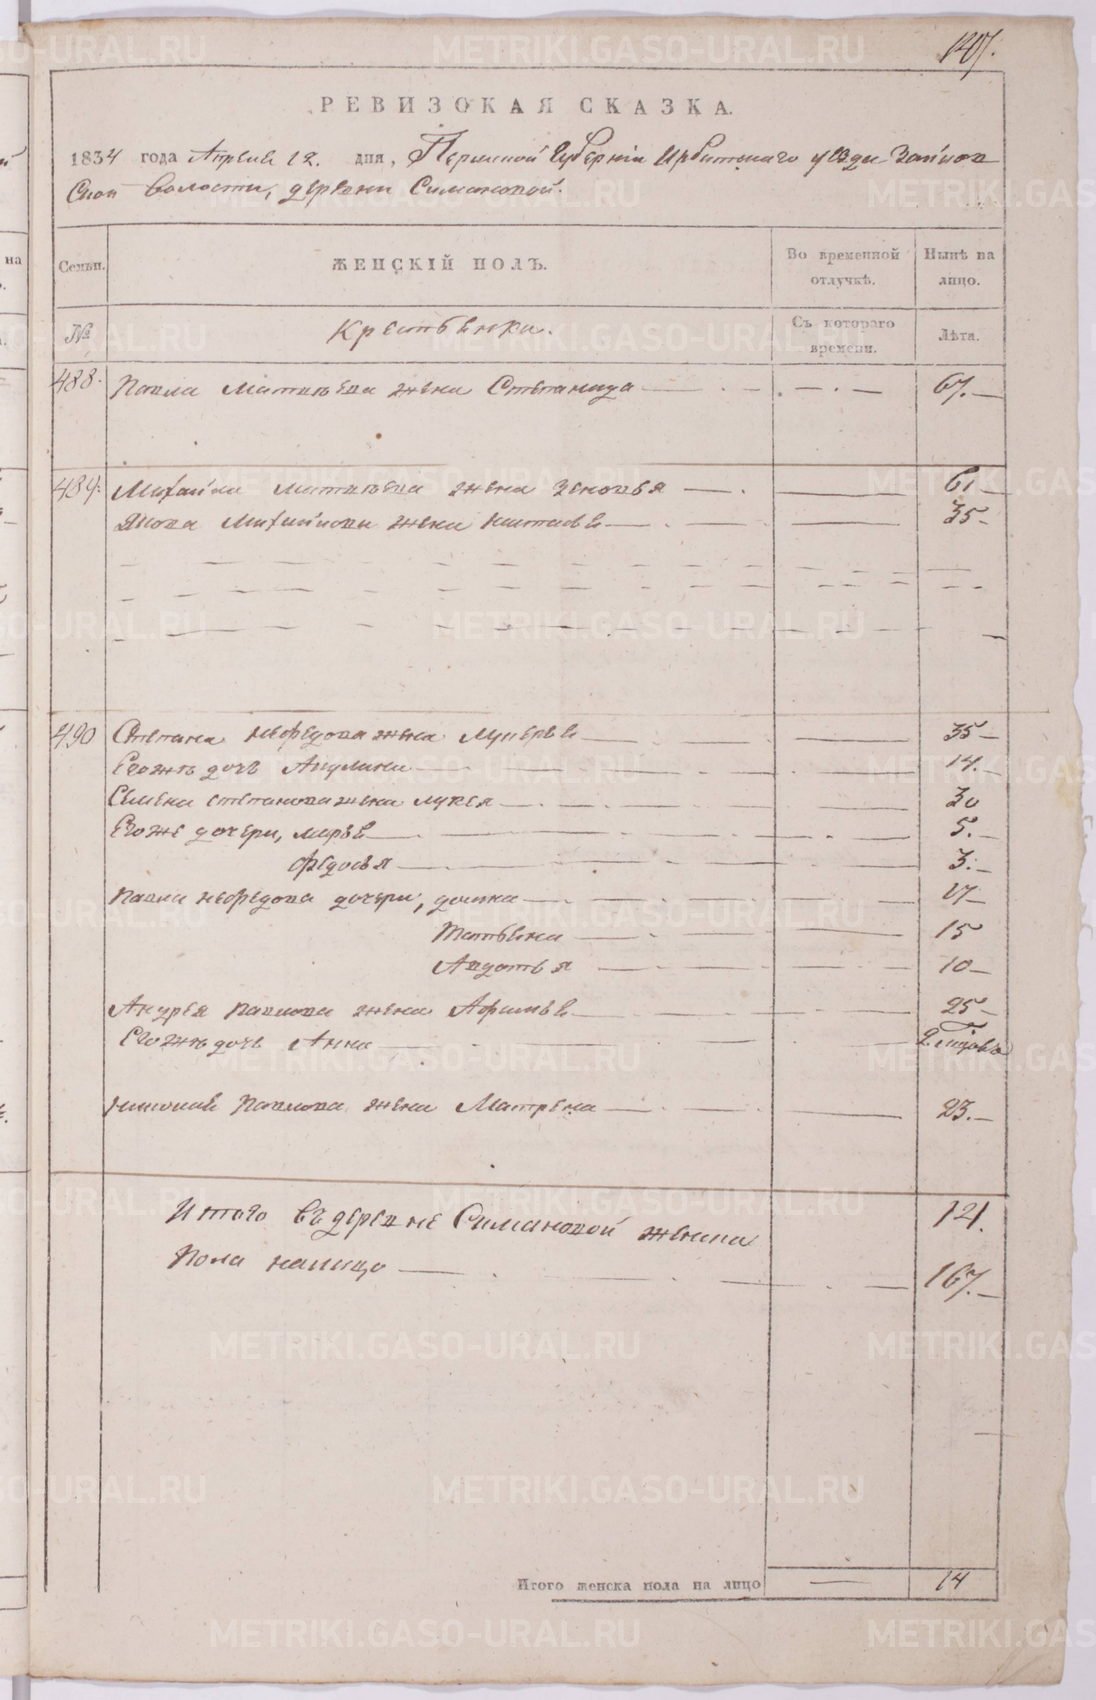 147.
РЕВИЗСКАЯ СКАЗКА.
1834 года Апреля 12. дня, Пермской Губернiи Ирбитскаго уезда Зайков
ской Волости, деревни Симановой.
Семьи. ЖЕНСКIЙ ПОЛЪ. Во временной отлучкѣ. Нынѣ на лицо.
№ Крестьянки. Съ котораго времени. Лѣта.
488. Павла Матвеева жена Степанида 67.
489. Михаила Матвеева жена Зеновья 61
Якова Михайлова жена 35
490 Степана Нефедова жена Лукерья 35
Егожъ дочь Акулина 14.
Семена Степанова жена Лукея 30
Егоже дочери, Марья 5.
Федосья 3.
Павла Нефедова дочери, Домна 17
Татьяна 15
Авдотья 10
Андрея Павлова жена Афимья 25
Егожъ дочь Анна
Николая Павлова жена Матрена 23.
Итого въ деревне Симановой женска 121.
пола налицо 167.
Итого женска пола на лицо 14
METRIKI.GASO-URAL.RU